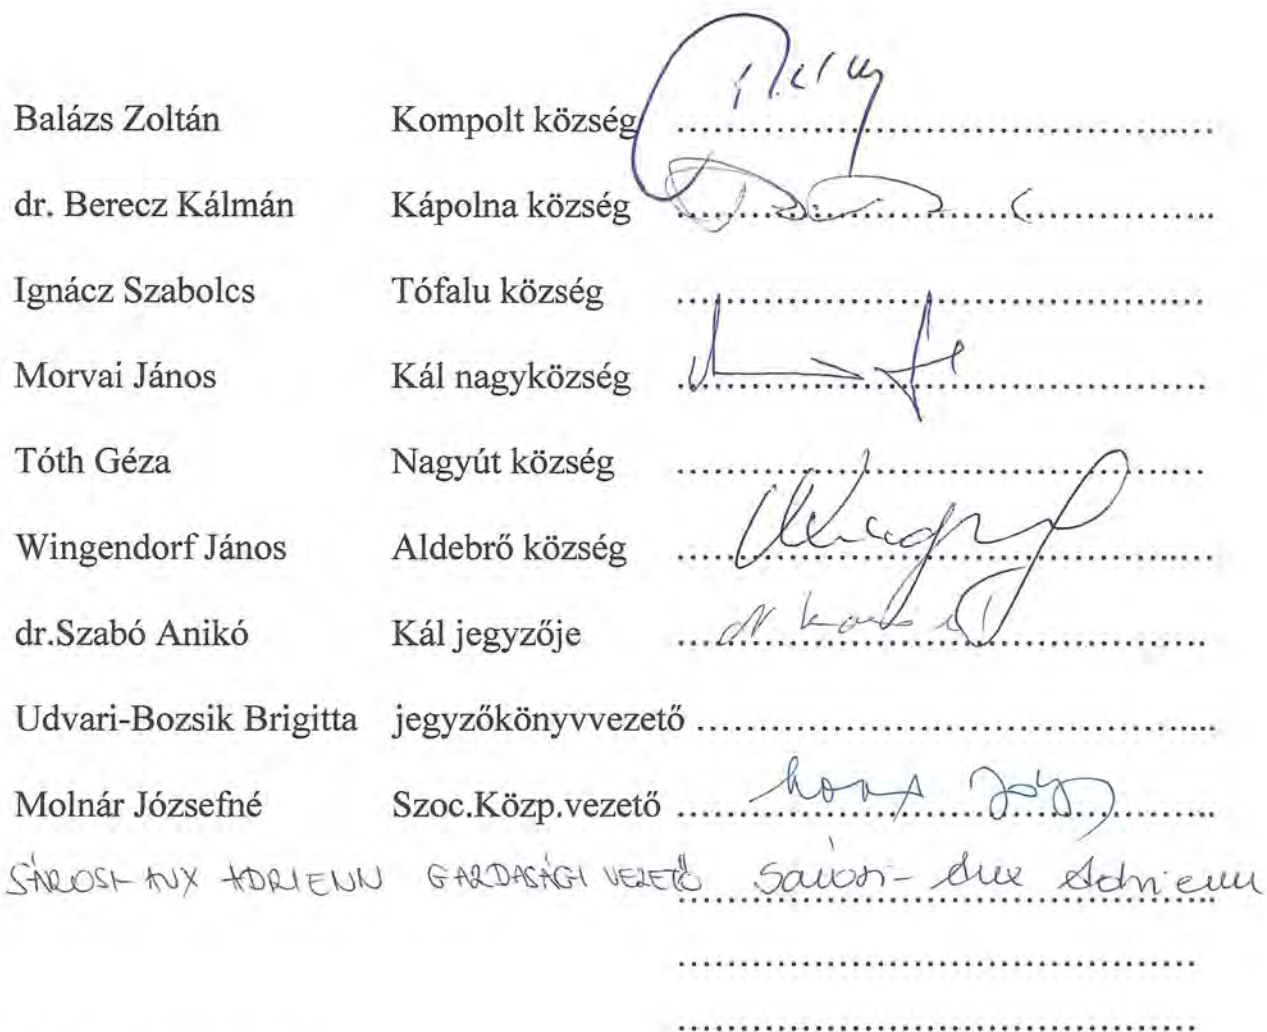 Balázs Zoltán Kompolt község ........................................
dr. Berecz Kálmán Kápolna község ........................................
Ignácz Szabolcs Tófalu község ........................................
Morvai János Kál nagyközség ........................................
Tóth Géza Nagyút község ........................................
Wingendorf János Aldebrő község ........................................
dr.Szabó Anikó Kál jegyzője ........................................
Udvari-Bozsik Brigitta jegyzőkönyvvezető ........................................
Molnár Józsefné Szoc.Közp.vezető ........................................
SÁROSI-AUX ADRIENN GAZDASÁGI VEZETŐ Sárosi-Aux Adrienn
........................................
........................................